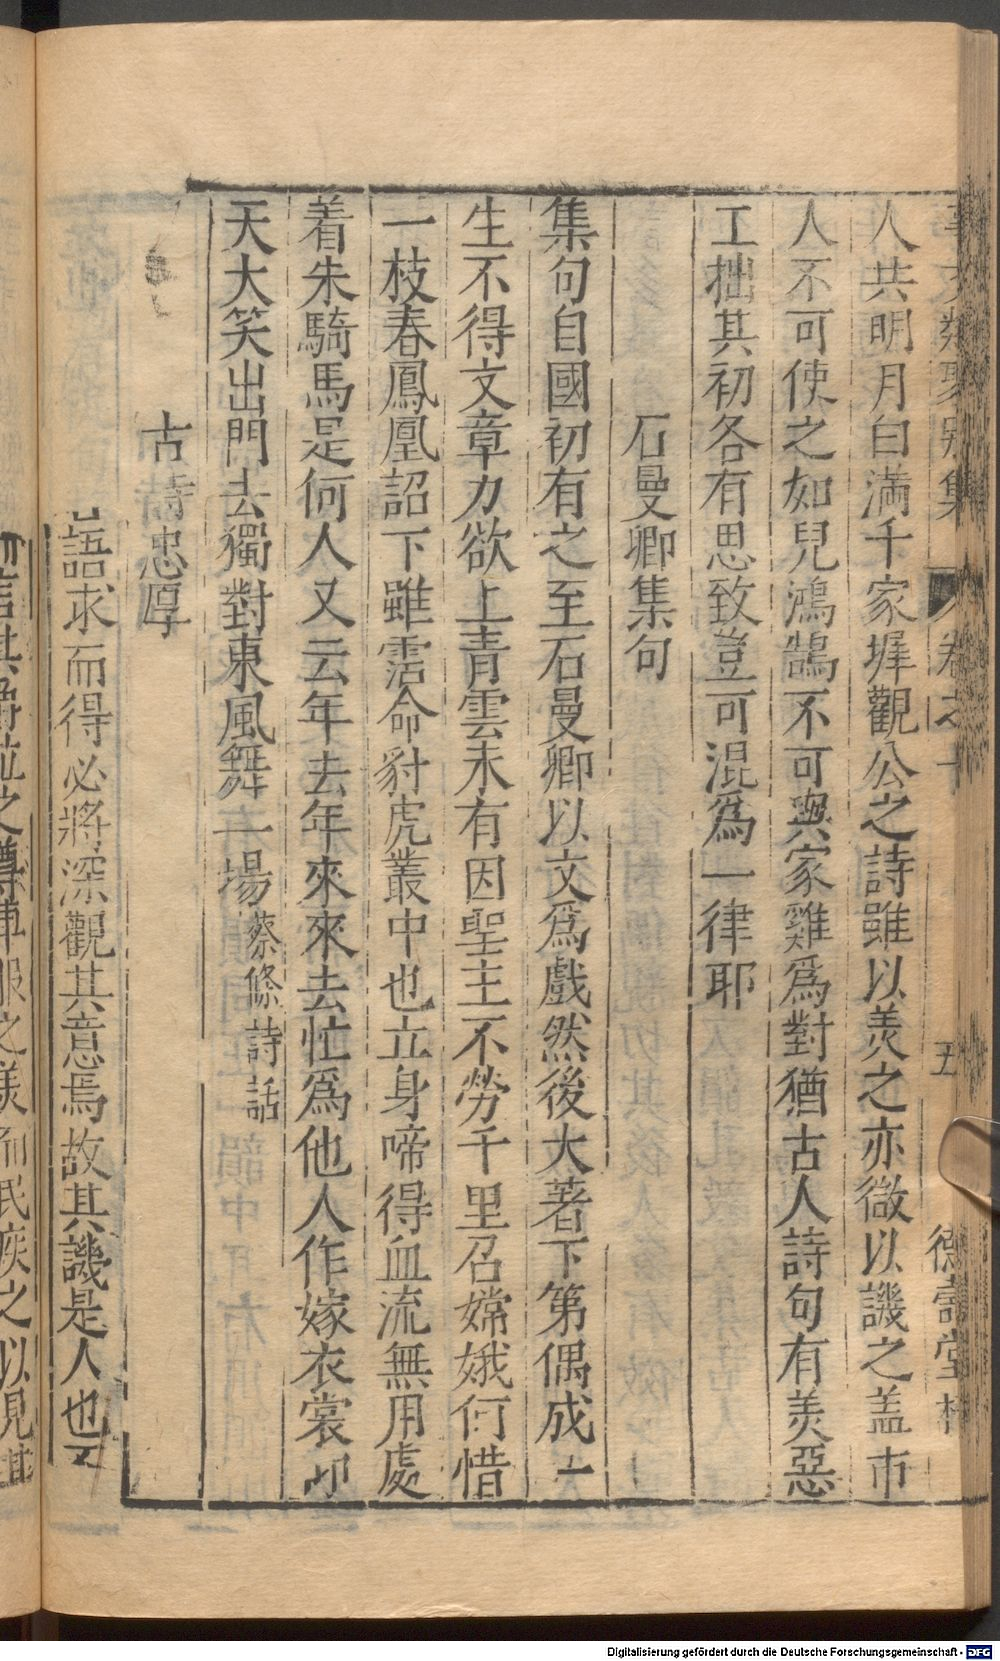 事文類聚別集 卷之十 五 德壽堂梓
人共明月白滿千家墀觀公之詩雖以羨之亦微以譏之盖市
人不可使之如兒鴻鵠不可與家雞爲對猶古人詩句有羨惡
工拙其初各有思致豈可混爲一律耶
石曼卿集句
集句自國初有之至石曼卿以文爲戲然後大著下第偶成一
生不得文章力欲上青雲未有因聖主不勞千里召嫦娥何惜
一枝春鳳凰詔下雖霑命豺虎叢中也立身啼得血流無用處
着朱騎馬是何人又云年去年來來去忙爲他人作嫁衣裳卬
天大笑出門去獨對東風舞一場蔡條詩話
古詩忠厚
語求而得必將深觀其意焉故其譏是人也
言其爵位之尊車服之美而民疾之以見其
Digitalisierung gefördert durch die Deutsche Forschungsgemeinschaft - DFG